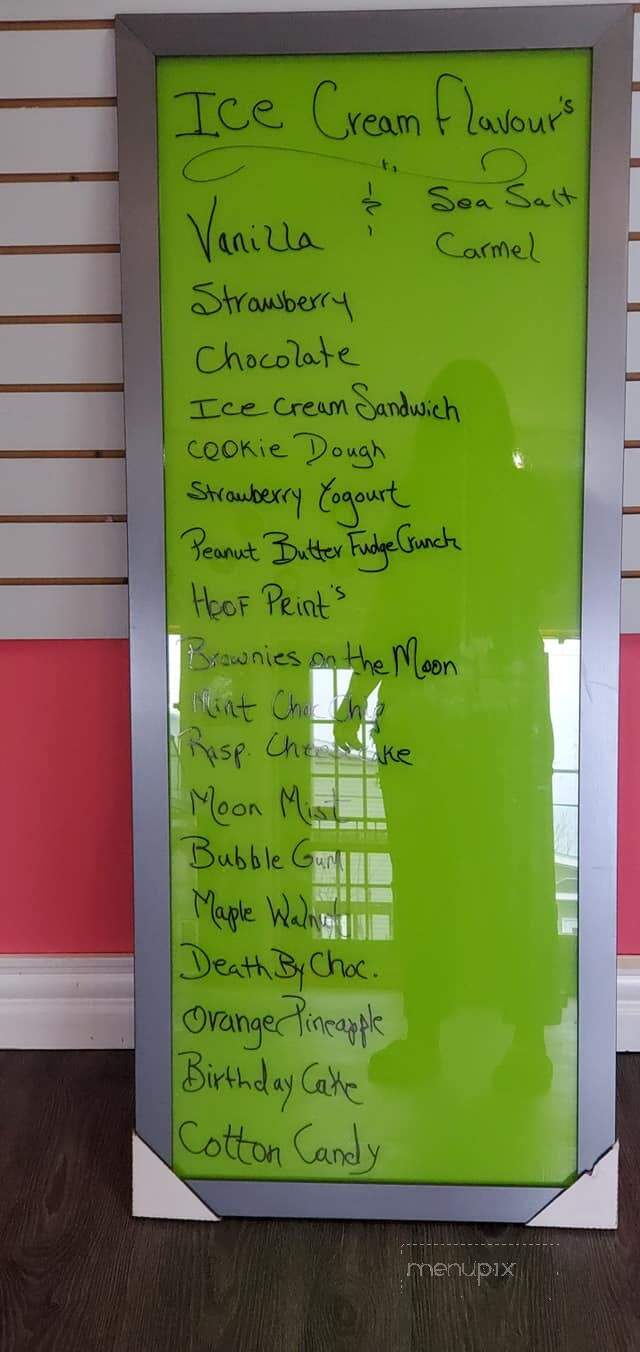 Ice Cream Flavour's
Vanilla
Sea Salt
Carmel
Strawberry
Chocolate
Ice Cream Sandwich
Cookie Dough
Strawberry Yogourt
Peanut Butter Fudge Crunch
Hoof Print's
Brownies on the Moon
Mint Choc Chip
Rasp. Cheesecake
Moon Mist
Bubble Gum
Maple Walnut
Death By Choc.
Orange Pineapple
Birthday Cake
Cotton Candy
menupix